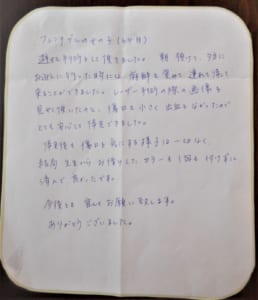 フレンチブルの女の子(6ヶ月)
避妊手術をして頂きました。 朝 預けて、夕方に
お迎えに行った時には、麻酔も覚めて、連れて帰って
来ることができました。レーザー手術の際の画像も
見せて頂いたのと、傷口も小さく出血もなかったので
とても安心して帰宅できました。
帰宅後も傷口を気にする様子は一切なく
結局 先生からお借りしたカラーも1回も付けずに
済んで良かったです。
今後とも宜しくお願い致します。
ありがとうございました。